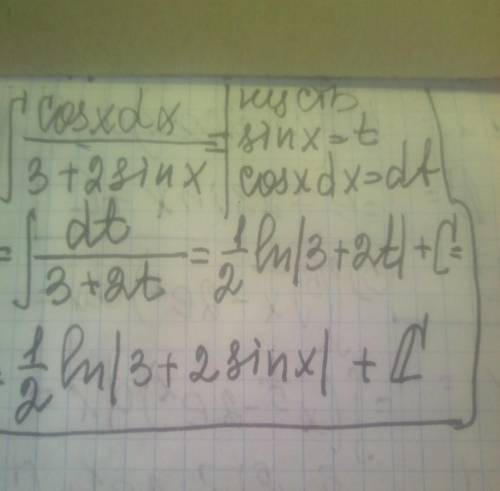 ∫ cosxdx / 3+2sinx = | пусть
sinx=t
cosxdx=dt |
= ∫ dt / 3+2t = 1/2 ln|3+2t|+C=
= 1/2 ln|3+2sinx| + C